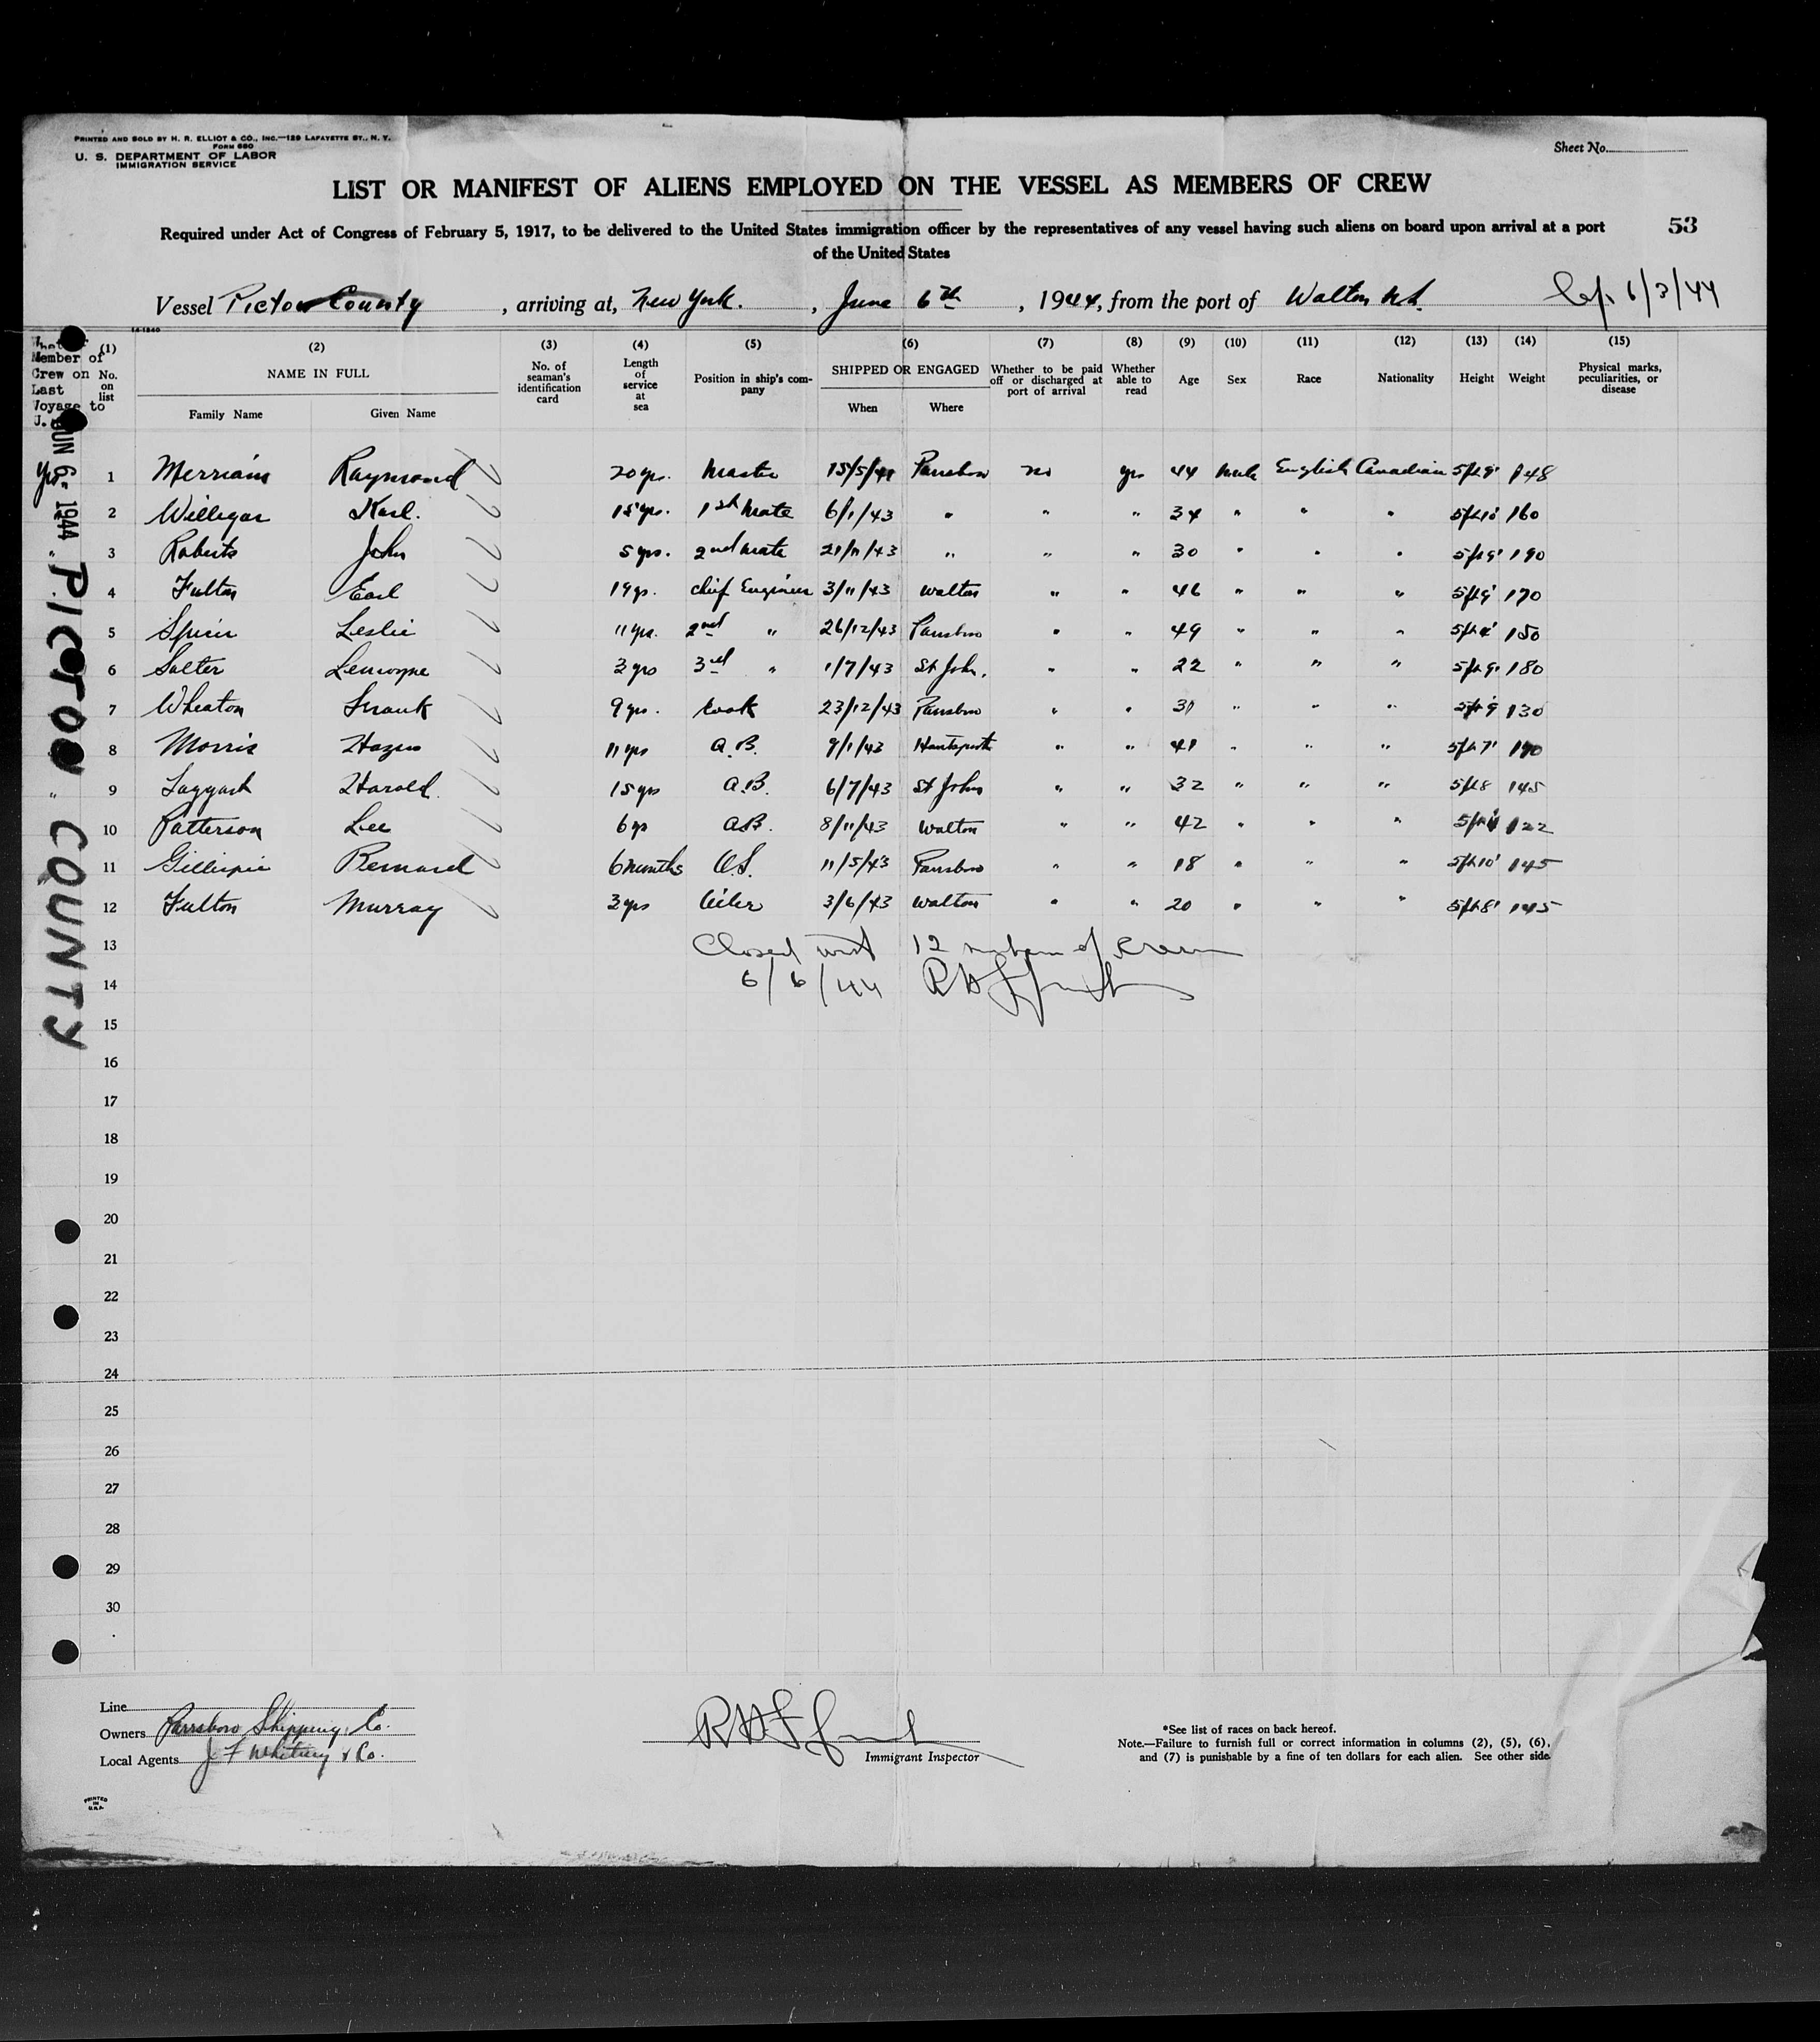 PRINTED AND SOLD BY H. R. ELLIOT & CO., INC.—129 LAFAYETTE ST., N. Y.
FORM 680
U. S. DEPARTMENT OF LABOR
IMMIGRATION SERVICE
Sheet No.
LIST OR MANIFEST OF ALIENS EMPLOYED ON THE VESSEL AS MEMBERS OF CREW
Required under Act of Congress of February 5, 1917, to be delivered to the United States immigration officer by the representatives of any vessel having such aliens on board upon arrival at a port
of the United States
53
Vessel Pictou County, arriving at, New York., June 6th, 1944, from the port of Walton N.S. 6/3/44
Member of Crew on Last Voyage to
(1) No. on list
(2) NAME IN FULL Family Name Given Name
(3) No. of seaman's identification card
(4) Length of service at sea
(5) Position in ship's company
(6) SHIPPED OR ENGAGED When Where
(7) Whether to be paid off or discharged at port of arrival
(8) Whether able to read
(9) Age
(10) Sex
(11) Race
(12) Nationality
(13) Height
(14) Weight
(15) Physical marks, peculiarities, or disease
JUN 6- 1944
PICTOU COUNTY
yes 1 Merriam Raymond 20 yrs. Master Parrsboro no yes 44 Male English Canadian 5ft 9" 148
2 Willigar Karl. 15 yrs. 1st Mate 6/1/43 " " " 34 " " " 5ft 10" 160
3 Roberts John 5 yrs. 2nd Mate 21/11/43 " " " 30 " " " 5ft 9" 190
4 Fulton Earl 19 yrs. Chief Engineer 3/11/43 Walton " " 46 " " " 5ft 9" 170
5 Spicer Leslie 11 yrs. 2nd " 26/12/43 Parrsboro " " 49 " " " 150
6 Salter Lemoyne 3 yrs 3rd " 1/7/43 St John. " " 22 " " " 5ft 9" 180
7 Wheaton Frank 9 yrs. Cook 23/12/43 Parrsboro " " 31 " " " 130
8 Morris Hazen 11 yrs A.B. 9/1/43 Hantsport " " 41 " " " 5ft 7"
9 Taggart Harold. 15 yrs A.B. 6/7/43 St John " " 32 " " " 5ft 8 145
10 Patterson Lee 6 yrs A.B. 8/11/43 Walton " " 42 " " " 122
11 Gillespie Bernard 6 months O.S. 11/5/43 Parrsboro " " 18 " " " 5ft 10" 145
12 Fulton Murray 3 yrs Oiler 3/6/43 Walton " " 20 " " " 5ft 8" 145
13 Closed with 12 members of Crew
14 6/6/44
15
16
17
18
19
20
21
22
23
24
25
26
27
28
29
30
Line
Owners Parrsboro Shipping Co.
Local Agents J F Whitney & Co.
Immigrant Inspector
*See list of races on back hereof.
Note.—Failure to furnish full or correct information in columns (2), (5), (6),
and (7) is punishable by a fine of ten dollars for each alien. See other side.
PRINTED
IN
U.S.A.